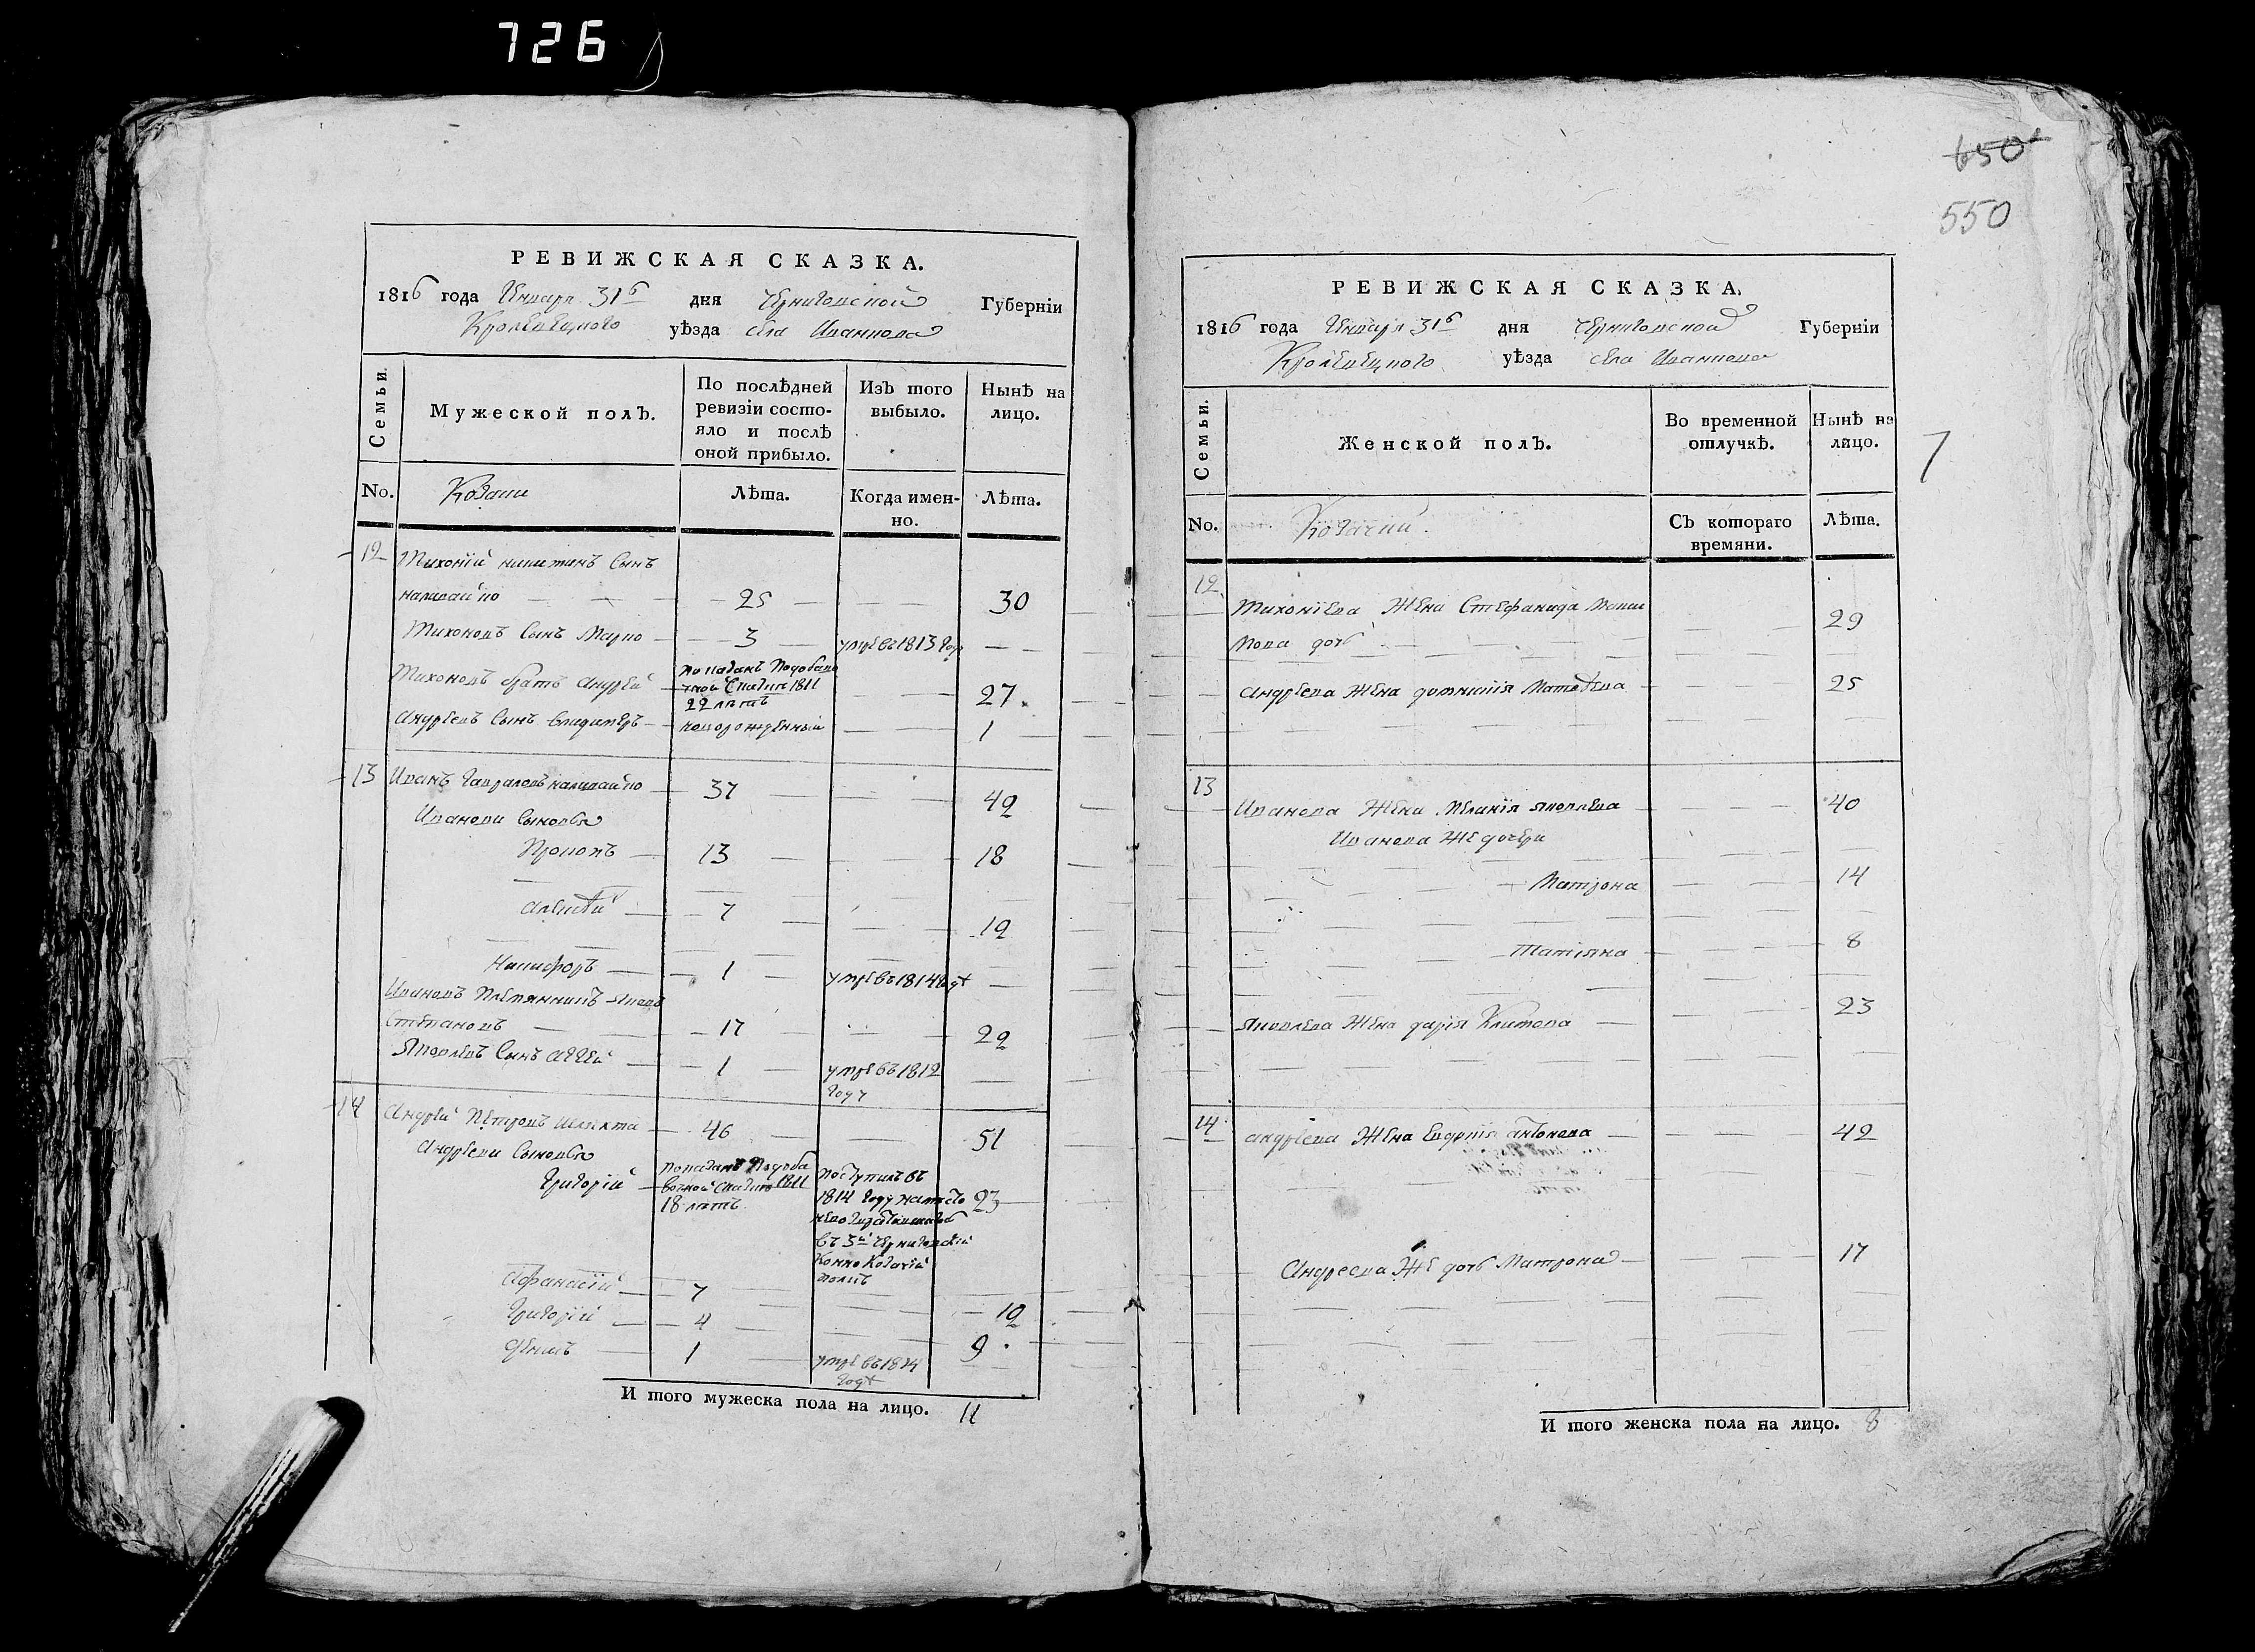 726
РЕВИЖСКАЯ СКАЗКА.
1816 года Генваря 31го дня Черниговской Губерніи
Кролевецкого уѣзда села Иванкова
Семьи.
Мужеской полъ.
По послѣдней ревизіи состояло и послѣ оной прибыло.
Изъ того выбыло.
Нынѣ на лицо.
No.
Козаки
Лѣта.
Когда именно.
Лѣта.
12 Тихоній никитинъ Сынъ
наливайко 25 30
Тихоновъ Сынъ Марко 3 умре въ 1813 году
Тихоновъ братъ Андрей
показанъ подобавочной Сказки 1811
22 лѣтъ 27
Андреевъ Сынъ владимеръ новорожденный 1
13 Иванъ Гавриловъ наливайко 37 42
Иванови Сыновья
Прокопъ 13 18
Алексѣй 7 12
Никифоръ 1 умре въ 1814 годѣ
Ивановъ Племянникъ Яковъ
Степановъ 17 22
Яковлевъ Сынъ 1 умре въ 1812
году
14 Андрей Петровъ 46 51
Андрееви Сыновья
Григорій
показанъ Подобавочной Сказки 1811
18 лѣтъ
Поступилъ въ
1814 году
въ 3й Черниговскій
Конно Козачій
полкъ
23
Афанасій 7 12
Григорій 4 9
Денисъ 1 умре въ 1814
годѣ
И того мужеска пола на лицо. 11
650
550
7
РЕВИЖСКАЯ СКАЗКА.
1816 года Генваря 31го дня Черниговской Губерніи
Кролевецкого уѣзда села Иванкова
Семьи.
Женской полъ.
Во временной отлучкѣ.
Нынѣ на лицо.
No.
Козачки.
Съ котораго времяни.
Лѣта.
12 Тихонієва Жена Стефанида
дочь 29
Андреева Жена домникія Матвѣева 25
13 Иванова Жена Меланія Яковлева 40
Иванова Же дочери
Матрона 14
Татіяна 8
Яковлева Жена дарія Климова 23
14 Андреева Жена Евдокія антонова 42
Андреева Же дочь Матрона 17
И того женска пола на лицо. 8